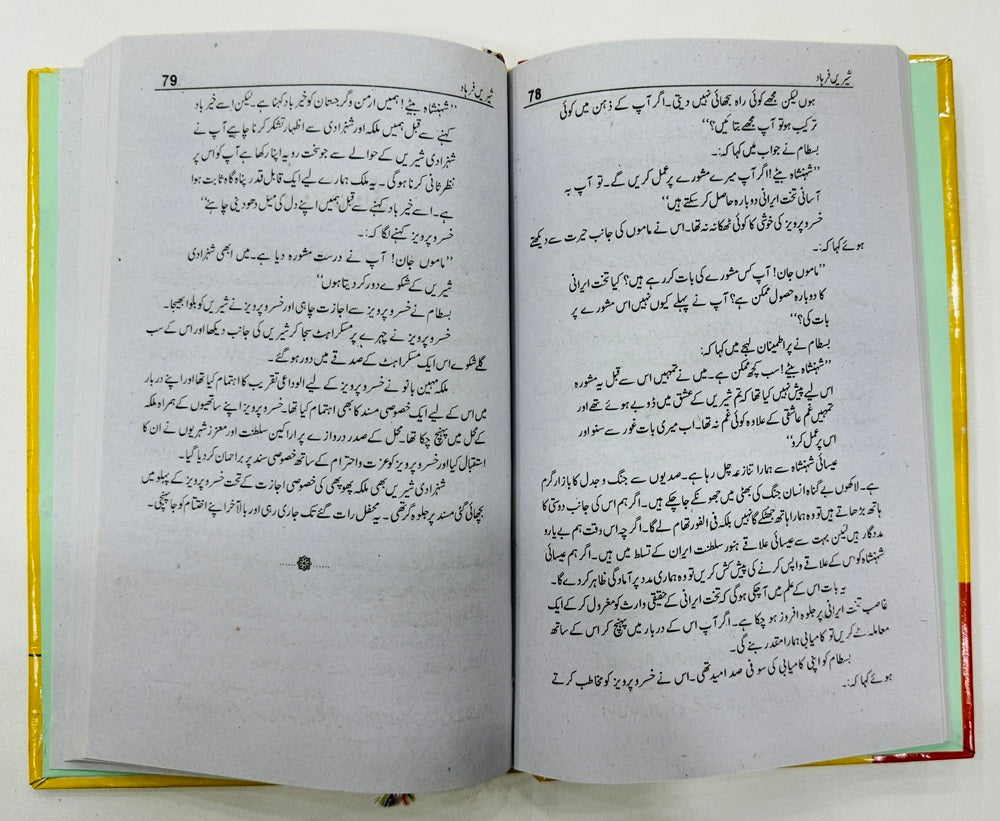 شیریں فرہاد
78
ہوں لیکن مجھے کوئی راہ سجھائی نہیں دیتی۔ اگر آپ کے ذہن میں کوئی
ترکیب ہو تو آپ مجھے بتائیں؟‘‘
بسطام نے جواب میں کہا کہ:۔
’’شہنشاہ بیٹے! اگر آپ میرے مشورے پر عمل کریں گے۔ تو آپ بہ
آسانی تخت ایرانی دوبارہ حاصل کر سکتے ہیں‘‘
خسرو پرویز کی خوشی کا کوئی ٹھکانہ نہ تھا۔ اس نے ماموں کی جانب حیرت سے دیکھتے
ہوئے کہا کہ:۔
’’ماموں جان! آپ کس مشورے کی بات کر رہے ہیں؟ کیا تخت ایرانی
کا دوبارہ حصول ممکن ہے؟ آپ نے پہلے کیوں نہیں اس مشورے پر
بات کی؟‘‘
بسطام نے پر اطمینان لہجے میں کہا کہ:
’’شہنشاہ بیٹے! سب کچھ ممکن ہے۔ میں نے تمہیں اس سے قبل یہ مشورہ
اس لیے پیش نہیں کیا تھا کہ تم شیریں کے عشق میں ڈوبے ہوئے تھے اور
تمہیں غم عاشقی کے علاوہ کوئی غم نہ تھا۔ اب میری بات غور سے سنو اور
اس پر عمل کرو‘‘
عیسائی شہنشاہ سے ہمارا تنازعہ چل رہا ہے۔ صدیوں سے جنگ و جدل کا بازار گرم
ہے۔ لاکھوں بے گناہ انسان جنگ کی بھٹی میں جھونکے جا چکے ہیں۔ اگر ہم اس کی جانب دوستی کا
ہاتھ بڑھاتے ہیں تو وہ ہمارا ہاتھ جھٹکے گا نہیں بلکہ فی الفور تھام لے گا۔ اگر چہ اس وقت ہم بے یارو
مددگار ہیں لیکن بہت سے عیسائی علاقے ہنوز سلطنت ایران کے تسلط میں ہیں۔ اگر ہم عیسائی
شہنشاہ کو اس کے علاقے واپس کرنے کی پیش کش کریں تو وہ ہماری مدد پر آمادگی ظاہر کر دے گا۔
یہ بات اس کے علم میں آ چکی ہو گی کہ تخت ایرانی کے حقیقی وارث کو مغرول کر کے ایک
غاصب تخت ایرانی پر جلوہ افروز ہو چکا ہے۔ اگر آپ اس کے دربار میں پہنچ کر اس کے ساتھ
معاملہ طے کریں تو کامیابی ہمارا مقدر بنے گی۔
بسطام کو اپنی کامیابی کی سو فی صد امید تھی۔ اس نے خسرو پرویز کو مخاطب کرتے
ہوئے کہا کہ:۔
شیریں فرہاد
79
’’شہنشاہ بیٹے! ہمیں ارمن و گرجستان کو خیر باد کہنا ہے۔ لیکن اسے خیر باد
کہنے سے قبل ہمیں ملکہ اور شہزادی سے اظہار تشکر کرنا چاہیے آپ نے
شہزادی شیریں کے حوالے سے جو سخت رویہ اپنا رکھا ہے آپ کو اس پر
نظر ثانی کرنا ہوگی۔ یہ ملک ہمارے لیے ایک قابل قدر پناہ گاہ ثابت ہوا
ہے۔ اسے خیر باد کہنے سے قبل ہمیں اپنے دل کی میل دھو دینی چاہئے‘‘
خسرو پرویز کہنے لگا کہ:۔
’’ماموں جان! آپ نے درست مشورہ دیا ہے۔ میں ابھی شہزادی
شیریں کے شکوے دور کر دیتا ہوں‘‘
بسطام نے خسرو پرویز سے اجازت چاہی اور خسرو پرویز نے شیریں کو بلوا بھیجا۔
خسرو پرویز نے چہرے پر مسکراہٹ سجا کر شیریں کی جانب دیکھا اور اس کے سب
گلے شکوے اس ایک مسکراہٹ کے صدقے میں دور ہو گئے۔
ملکہ مہین بانو نے خسرو پرویز کے لیے الوداعی تقریب کا اہتمام کیا تھا اور اپنے دربار
میں اس کے لیے ایک خصوصی مسند کا بھی اہتمام کیا تھا۔ خسرو پرویز اپنے ساتھیوں کے ہمراہ ملکہ
کے محل میں پہنچ چکا تھا۔ محل کے صدر دروازے پر اراکین سلطنت اور معزز شہریوں نے ان کا
استقبال کیا اور خسرو پرویز کو عزت و احترام کے ساتھ خصوصی سند پر براجمان کر دیا گیا۔
شہزادی شیریں بھی ملکہ پھوپھی کی خصوصی اجازت کے تحت خسرو پرویز کے پہلو میں
بچھائی گئی مسند پر جلوہ گر تھی۔ یہ محفل رات گئے تک جاری رہی اور بالآخر اپنے اختتام کو جا پہنچی۔